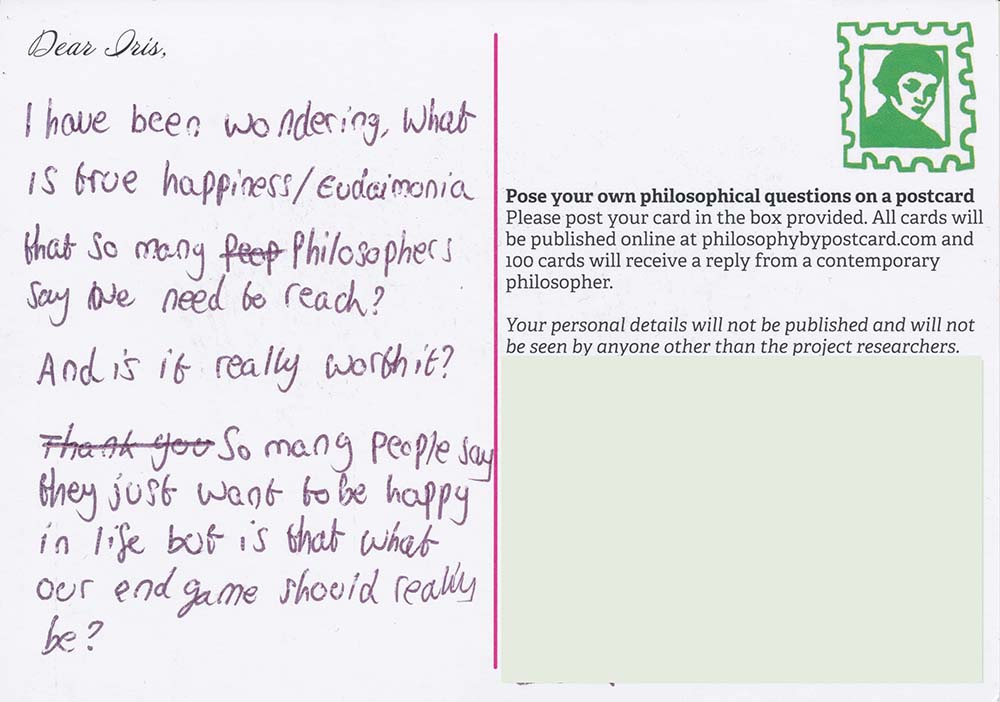 Dear Iris,
I have been wondering, What
is true happiness/Eudaimonia
that so many Peop Philosophers
say we need to reach?
And is it really worth it?
Thank you So many people say
they just want to be happy
in life but is that what
our end game should really
be?
Pose your own philosophical questions on a postcard
Please post your card in the box provided. All cards will
be published online at philosophybypostcard.com and
100 cards will receive a reply from a contemporary
philosopher.
Your personal details will not be published and will not
be seen by anyone other than the project researchers.